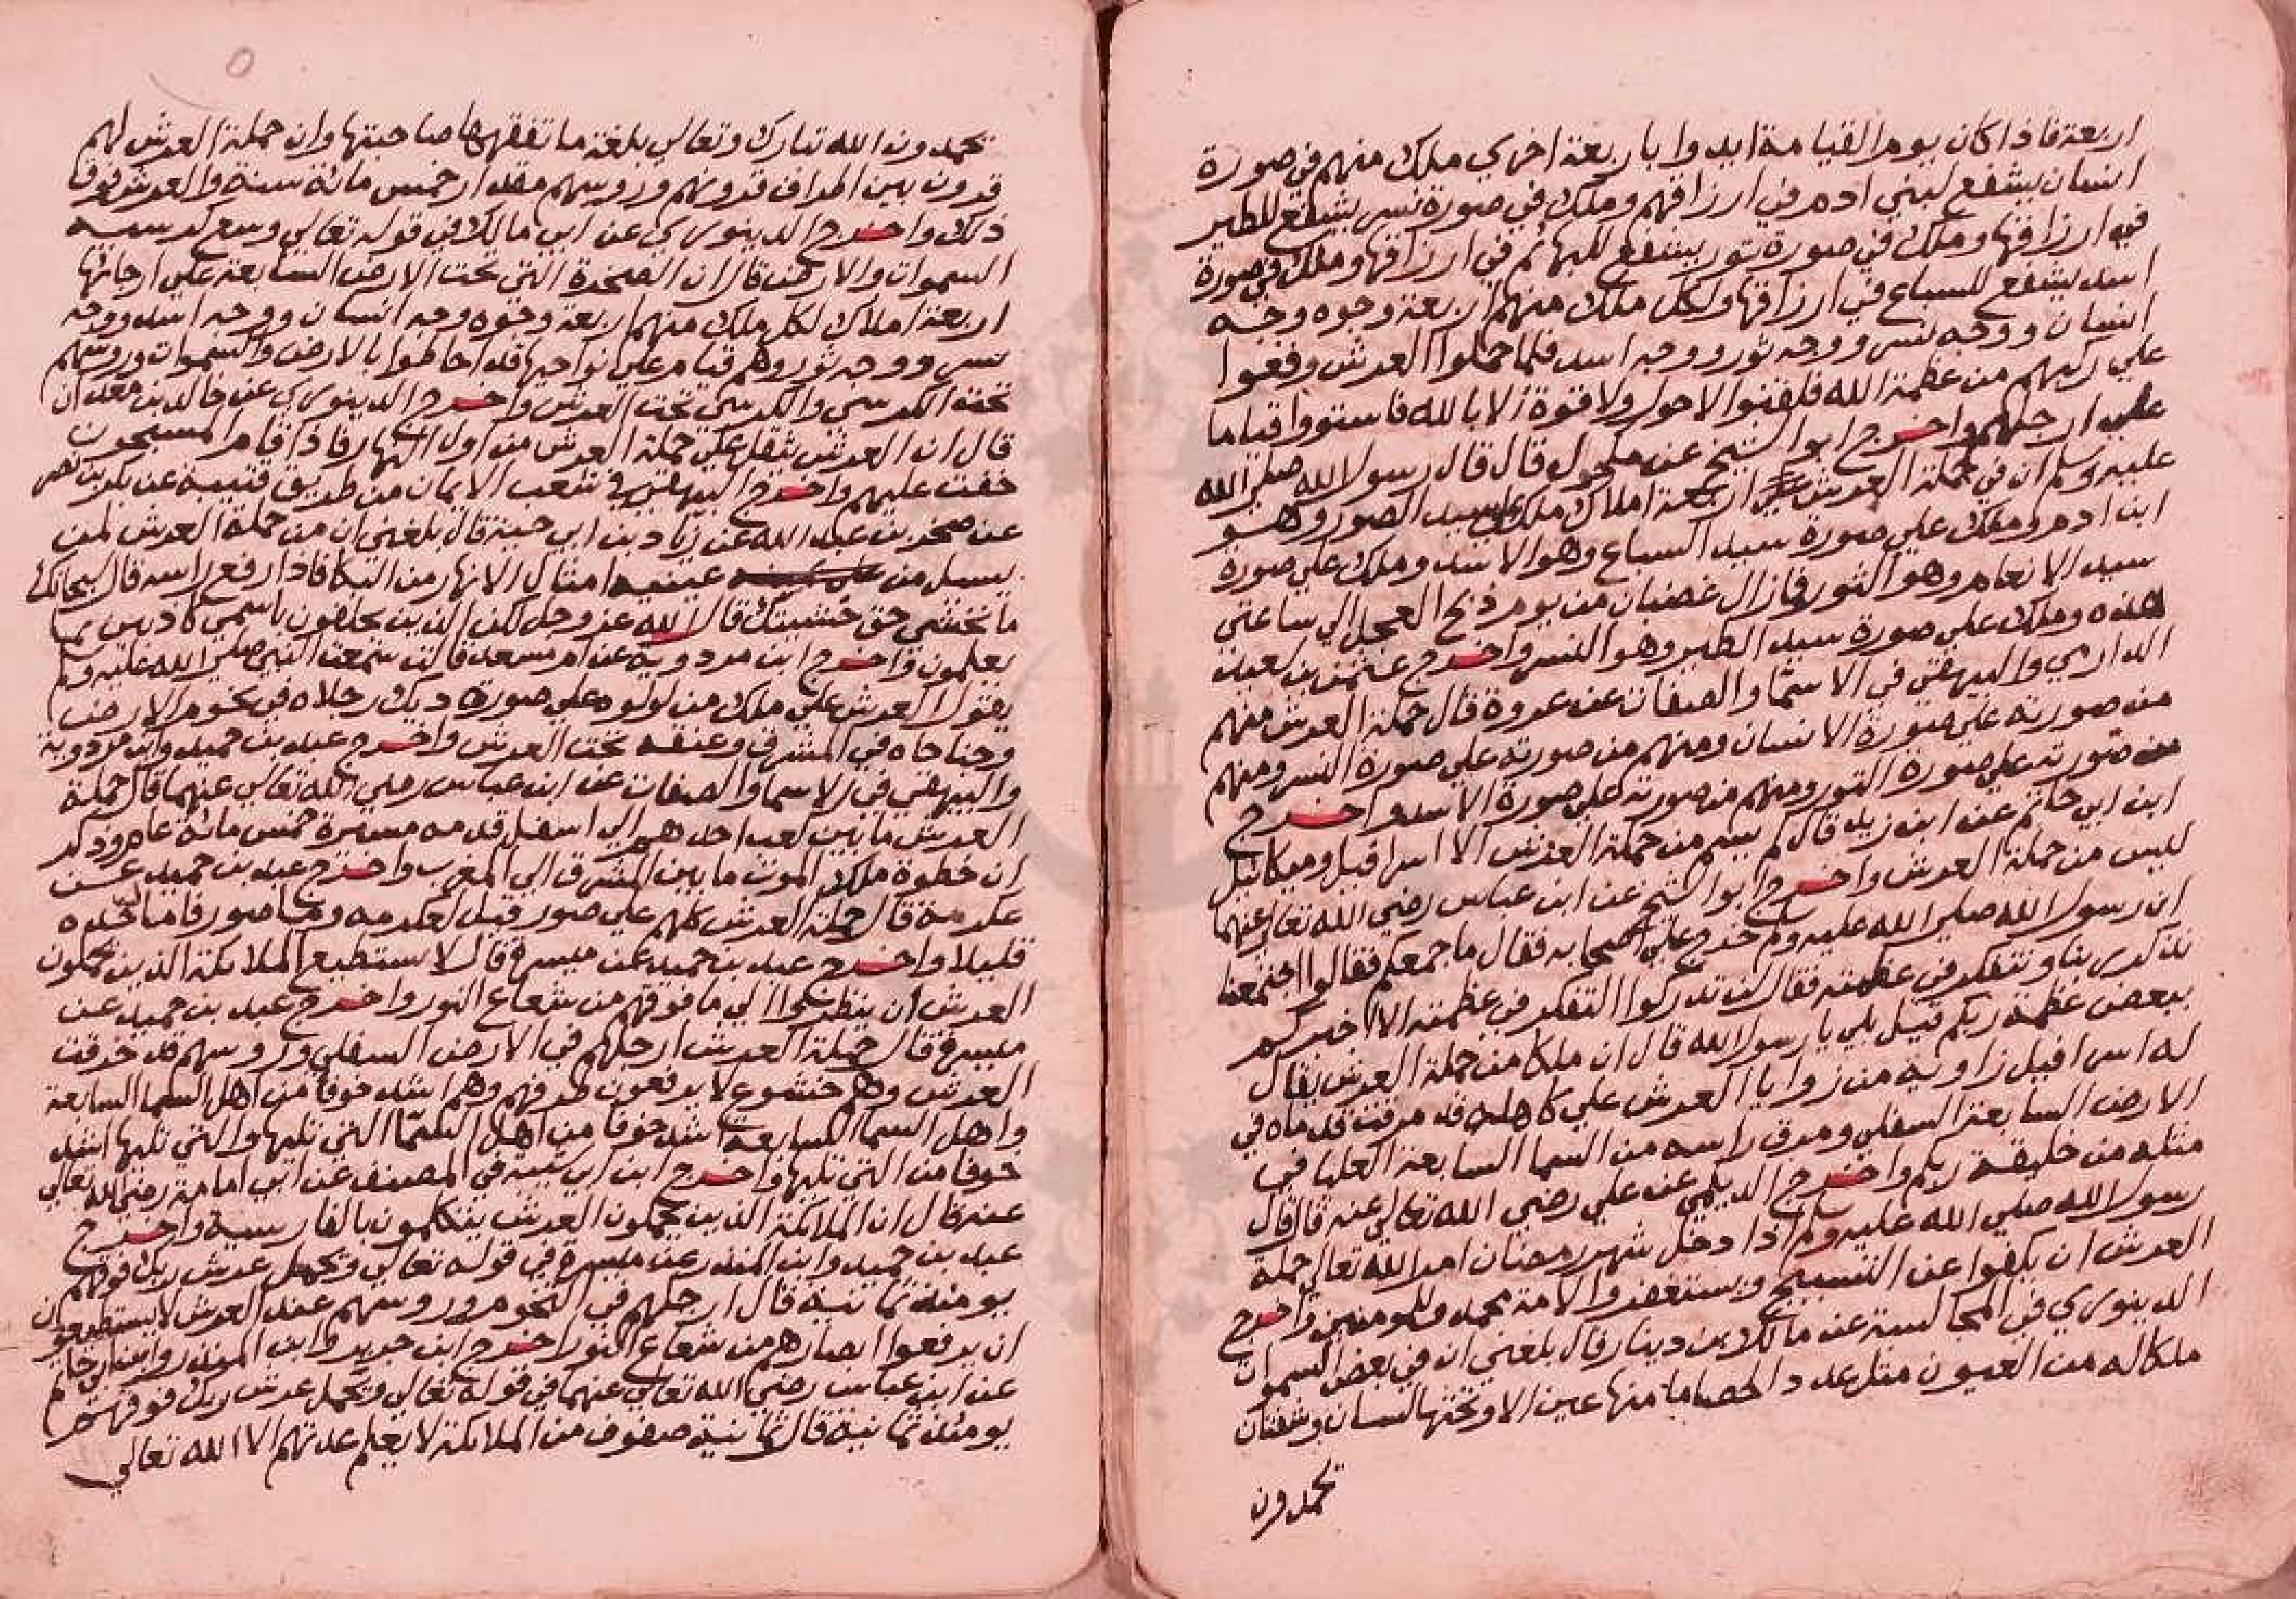 اربعة فاذا كان يوم القيامة ايدوا باربعة اخري ملك منهم في صورة
انسان يشفع لبني ادم في ارزاقهم وملك في صورة نسر يشفع للطير
في ارزاقها وملك في صورة ثور يشفع للبهائم في ارزاقها وملك في صورة
اسد يشفع للسباع في ارزاقها ولكل ملك منهم اربعة وجوه وجه
انسان ووجه نسر ووجه ثور ووجه اسد فلما حملوا العرش وقعوا
علي ركبهم من عظمة الله فلقنوا لاحول ولا قوة الا بالله فاستووا قياما
علي ارجلهم واخرج ابو الشيخ عن مكحول قال قال رسول الله صلي الله
عليه وسلم ان في حملة العرش اربعة املاك ملك علي سيد الصور وهو
ابن ادم وملك علي صورة سيد السباع وهو الاسد وملك علي صورة
سيد الانعام وهو الثور فمازال غضبان من يوم ذبح العجل الي ساعتي
هذه وملك علي صورة سيد الطير وهو النسر واخرج عثمن بن سعيد
الدارمي والبيهقي في الاسما والصفات عن عروة قال حملة العرش منهم
من صورته علي صورة الانسان ومنهم من صورته علي صورة النسر ومنهم
من صورته علي صورة الثور ومنهم من صورته علي صورة الاسد واخرج
ابن ابي حاتم عن ابن زيد قال لم يسم من حملة العرش الا اسرافيل وميكائيل
ليس من حملة العرش واخرج ابو الشيخ عن ابن عباس رضي الله تعالي عنهما
ان رسول الله صلي الله عليه وسلم خرج علي اصحابه فقال ما جمعكم فقالوا اجتمعنا
نذكر ربنا ونتفكر في عظمته فقال لن تدركوا التفكر في عظمته الا اخبركم
ببعض عظمة ربكم قيل بلي يا رسول الله قال ان ملكا من حملة العرش يقال
له اسرافيل زاوية من زوايا العرش علي كاهله قد مرقت قدماه في
الارض السابعة السفلي ومرق راسه من السما السابعة العليا في
مثله من خليقة ربكم واخرج الديلمي عن علي رضي الله تعالي عنه قال قال
رسول الله صلي الله عليه وسلم اذا دخل شهر رمضان امر الله تعالي حملة
العرش ان يكفوا عن التسبيح ويستغفروا لامة محمد وللمومنين واخرج
الدينوري في المجالسة عن مالك بن دينار قال بلغني ان في بعض السموات
ملكا له من العيون مثل عدد الحصا ما منها عين الا وتحتها لسان وشفتان
تحمدون
تحمدون الله تبارك وتعالي بلغة ما تفقهها صاحبتها وان حملة العرش لهم
قرون بين اطراف قرونهم ورؤسهم مقدار خمس مائة سنة والعرش فوق
ذلك واخرج الدينوري عن ابي مالك في قوله تعالي وسع كرسيه
السموات والارض قال ان الصخرة التي تحت الارض السابعة علي ارجائها
اربعة املاك لكل ملك منهم اربعة وجوه وجه انسان ووجه اسد ووجه
نسر ووجه ثور وهم قيام علي نواحيها قد احاطوا بالارض والسموات وروسهم
تحت الكرسي والكرسي تحت العرش واخرج الدينوري عن خالد بن معدان
قال ان العرش يثقل علي حملة العرش من اول النهار فاذا قام المسبحون
خفت عليهم واخرج البيهقي في شعب الايمان من طريق قتيبة عن بكر بن نصر
عن صخر بن عبد الله عن زياد بن ابي حبيبة قال بلغني ان من حملة العرش لمن
يسيل من عينيه امثال الانهار من البكا فاذا رفع راسه قال سبحانك
ما تخشي حق خشيتك قال الله عز وجل لكن الذين يحلفون باسمي كاذبين لا
يعلمون واخرج ابن مردوية عن ام سعد قالت سمعت النبي صلي الله عليه وسلم
يقول العرش علي ملك من لولوه علي صورة ديك رجلاه في تخوم الارض
وجناحاه في المشرق وعنقه تحت العرش واخرج عبد بن حميد وابن مردوية
والبيهقي في الاسما والصفات عن ابن عباس رضي الله تعالي عنهما قال حملة
العرش ما بين كعب احدهم الي اسفل قدمه مسيرة خمس مائة عام وذكر
ان خطوة ملك الموت ما بين المشرق الي المغرب واخرج عبد بن حميد عن
عكرمة قال حملة العرش كلهم علي صور قيل لعكرمه وما صور فامال خده
قليلا واخرج عبد بن حميد عن ميسرة قال لا تستطيع الملائكة الذين يحملون
العرش ان ينظروا الي ما فوقهم من شعاع النور واخرج عبد بن حميد عن
ميسرة قال حملة العرش ارجلهم في الارض السفلي وروسهم قد خرقت
العرش وهم خشوع لا يرفعون طرفهم وهم اشد خوفا من اهل السما السابعة
واهل السما السابعة اشد خوفا من اهل السما التي تليها والتي تليها اشد
خوفا من التي تليها واخرج ابن ابي شيبه في المصنف عن ابي امامة رضي الله تعالي
عنه قال ان الملائكة الذين يحملون العرش يتكلمون بالفارسية واخرج
عبد بن حميد وابن المنذر عن ميسرة في قوله تعالي ويحمل عرش ربك فوقهم
يومئذ ثمانية قال ارجلهم في التخوم وروسهم عند العرش لا يستطيعون
ان يرفعوا ابصارهم من شعاع النور اخرج ابن جرير وابن المنذر وابن ابي حاتم
عن ابن عباس رضي الله تعالي عنهما في قوله تعالي ويحمل عرش ربك فوقهم
يومئذ ثمانية قال ثمانية صفوف من الملائكة لا يعلم عدتهم الا الله تعالي